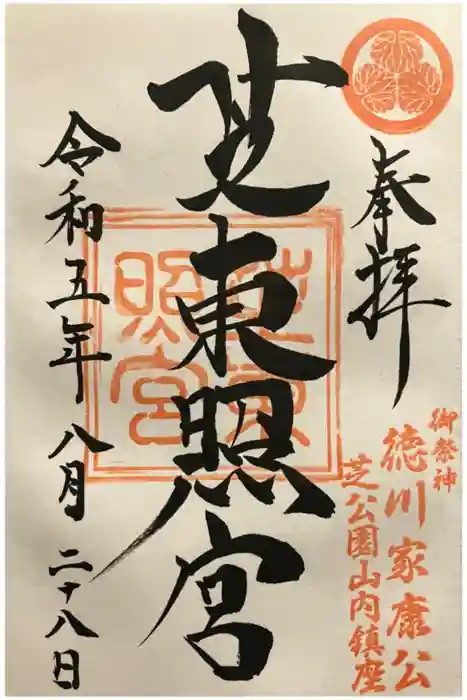 奉拝
御祭神
徳川家康公
芝公園山内鎮座
芝東照宮
芝東照宮
令和五年八月二十八日